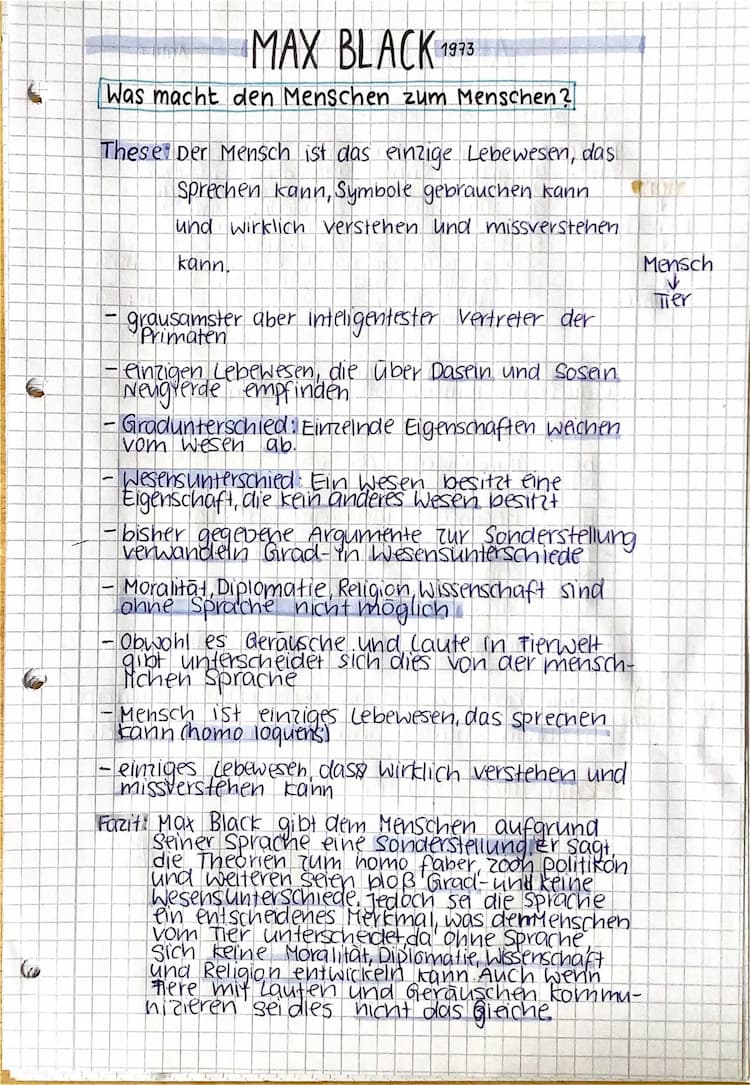 MAX BLACK 1973
Was macht den Menschen zum Menschen?
These: Der Mensch ist das einzige Lebewesen, das
sprechen kann, Symbole gebrauchen kann
und wirklich verstehen und missverstehen
kann.
Mensch
↓
Tier
- grausamster aber inteligentester Vertreter der
Primaten
- einzigen Lebewesen, die über Dasein und Sosein
Neugierde empfinden
- Gradunterschied: Einzelnde Eigenschaften weichen
vom Wesen ab.
- Wesensunterschied: Ein Wesen besitzt eine
Eigenschaft, die kein anderes Wesen besitzt
- bisher gegebene Argumente zur Sonderstellung
verwandeln Grad- in Wesensunterschiede
- Moralität, Diplomatie, Religion, Wissenschaft sind
ohne Sprache nicht möglich.
- Obwohl es Geräusche und Laute in Tierwelt
gibt unterscheidet sich dies von der mensch-
lichen Sprache
- Mensch ist einziges Lebewesen, das sprechen
kann (homo loquens)
- einziges Lebewesen, dass wirklich verstehen und
missverstehen kann
Fazit: Max Black gibt dem Menschen aufgrund
seiner Sprache eine Sonderstellung. Er sagt,
die Theorien zum homo faber, zoon politikon
und weiteren seien bloß Grad- und keine
Wesensunterschiede. Jedoch sei die Sprache
ein entscheidenes Merkmal, was den Menschen
vom Tier unterscheidet, da ohne Sprache
sich keine Moralität, Diplomatie, Wissenschaft
und Religion entwickeln kann. Auch wenn
Tiere mit Lauten und Geräuschen kommu-
nizieren sei dies nicht das Gleiche.